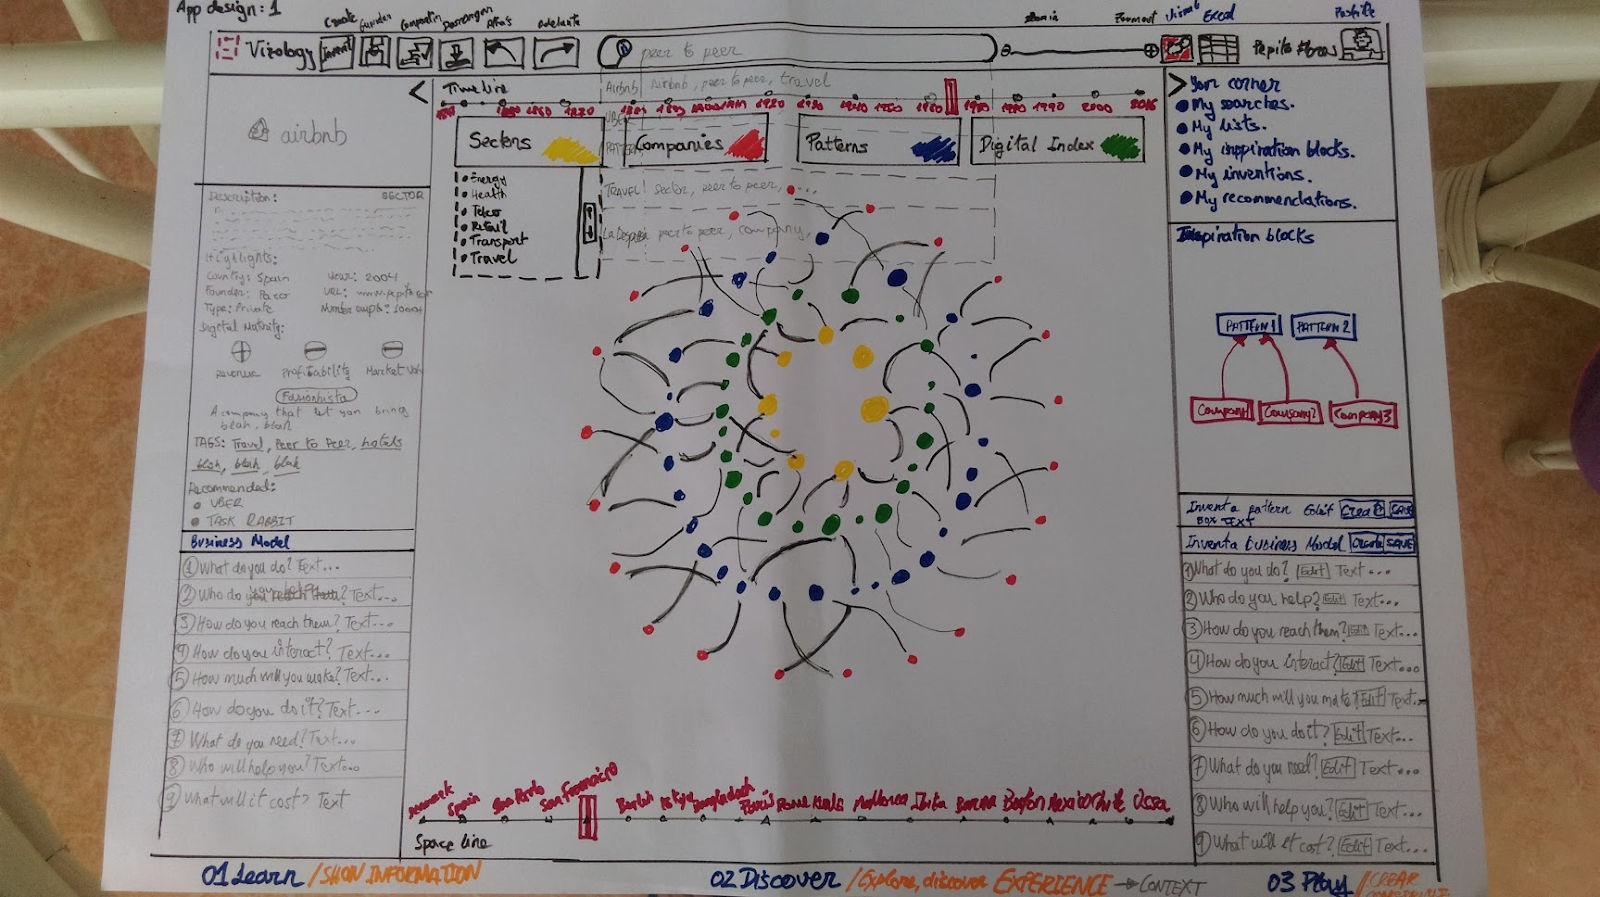 App design: 1
Create Guardar Compartir Descargar Atrás Adelante
Zoom Format Visual Excel Profile
Vizology Invent peer to peer Pepito Flores
Airbnb Airbnb, peer to peer, travel
Time line
1850 1870 1920 1930 1940 1950 1960 1980 1990 2000 2016
UBER
Sectors Companies Patterns Digital Index
Energy
Health
Teleco
Retail
Transport
Travel
TRAVEL! Sector, peer to peer, ...
peer to peer, company,
airbnb
Description: SECTOR
Highlights:
Country: Spain Year: 2004
Founder: Pacor URL: www.pepito.com
Type: Private Number empl: 1000+
Digital Maturity:
Revenue Profitability Market Val
Fashionista
A company that let you bring
blah, blah
TAGS: Travel, Peer to Peer, hotels
blah, blah, blah
Recommended:
UBER
TASK RABBIT
Business Model
1 What do you do? Text...
2 Who do you ? Text...
3 How do you reach them? Text...
4 How do you interact? Text...
5 How much will you make? Text...
6 How do you do it? Text...
7 What do you need? Text...
8 Who will help you? Text...
9 What will it cost? Text
Your corner
My searches.
My lists.
My inspiration blocks.
My inventions.
My recommendations.
Inspiration blocks
PATTERN 1 PATTERN 2
Company 1 Company 2 Company 3
Invent a pattern Edit Create SAVE
BOX TEXT
Invent a business Model Create SAVE
1 What do you do? Edit Text...
2 Who do you help? Edit Text...
3 How do you reach them? Edit Text...
4 How do you interact? Edit Text...
5 How much will you make? Edit Text...
6 How do you do it? Edit Text...
7 What do you need? Edit Text...
8 Who will help you? Edit Text...
9 What will it cost? Edit Text...
Denmark Spain Sao Paulo San Francisco Berlin Bangladesh Paris Rome Mallorca Boston Mexico Chile
Space line
01 Learn / SHOW INFORMATION
02 Discover / Explore, discover EXPERIENCE → CONTEXT
03 Play / CREAR